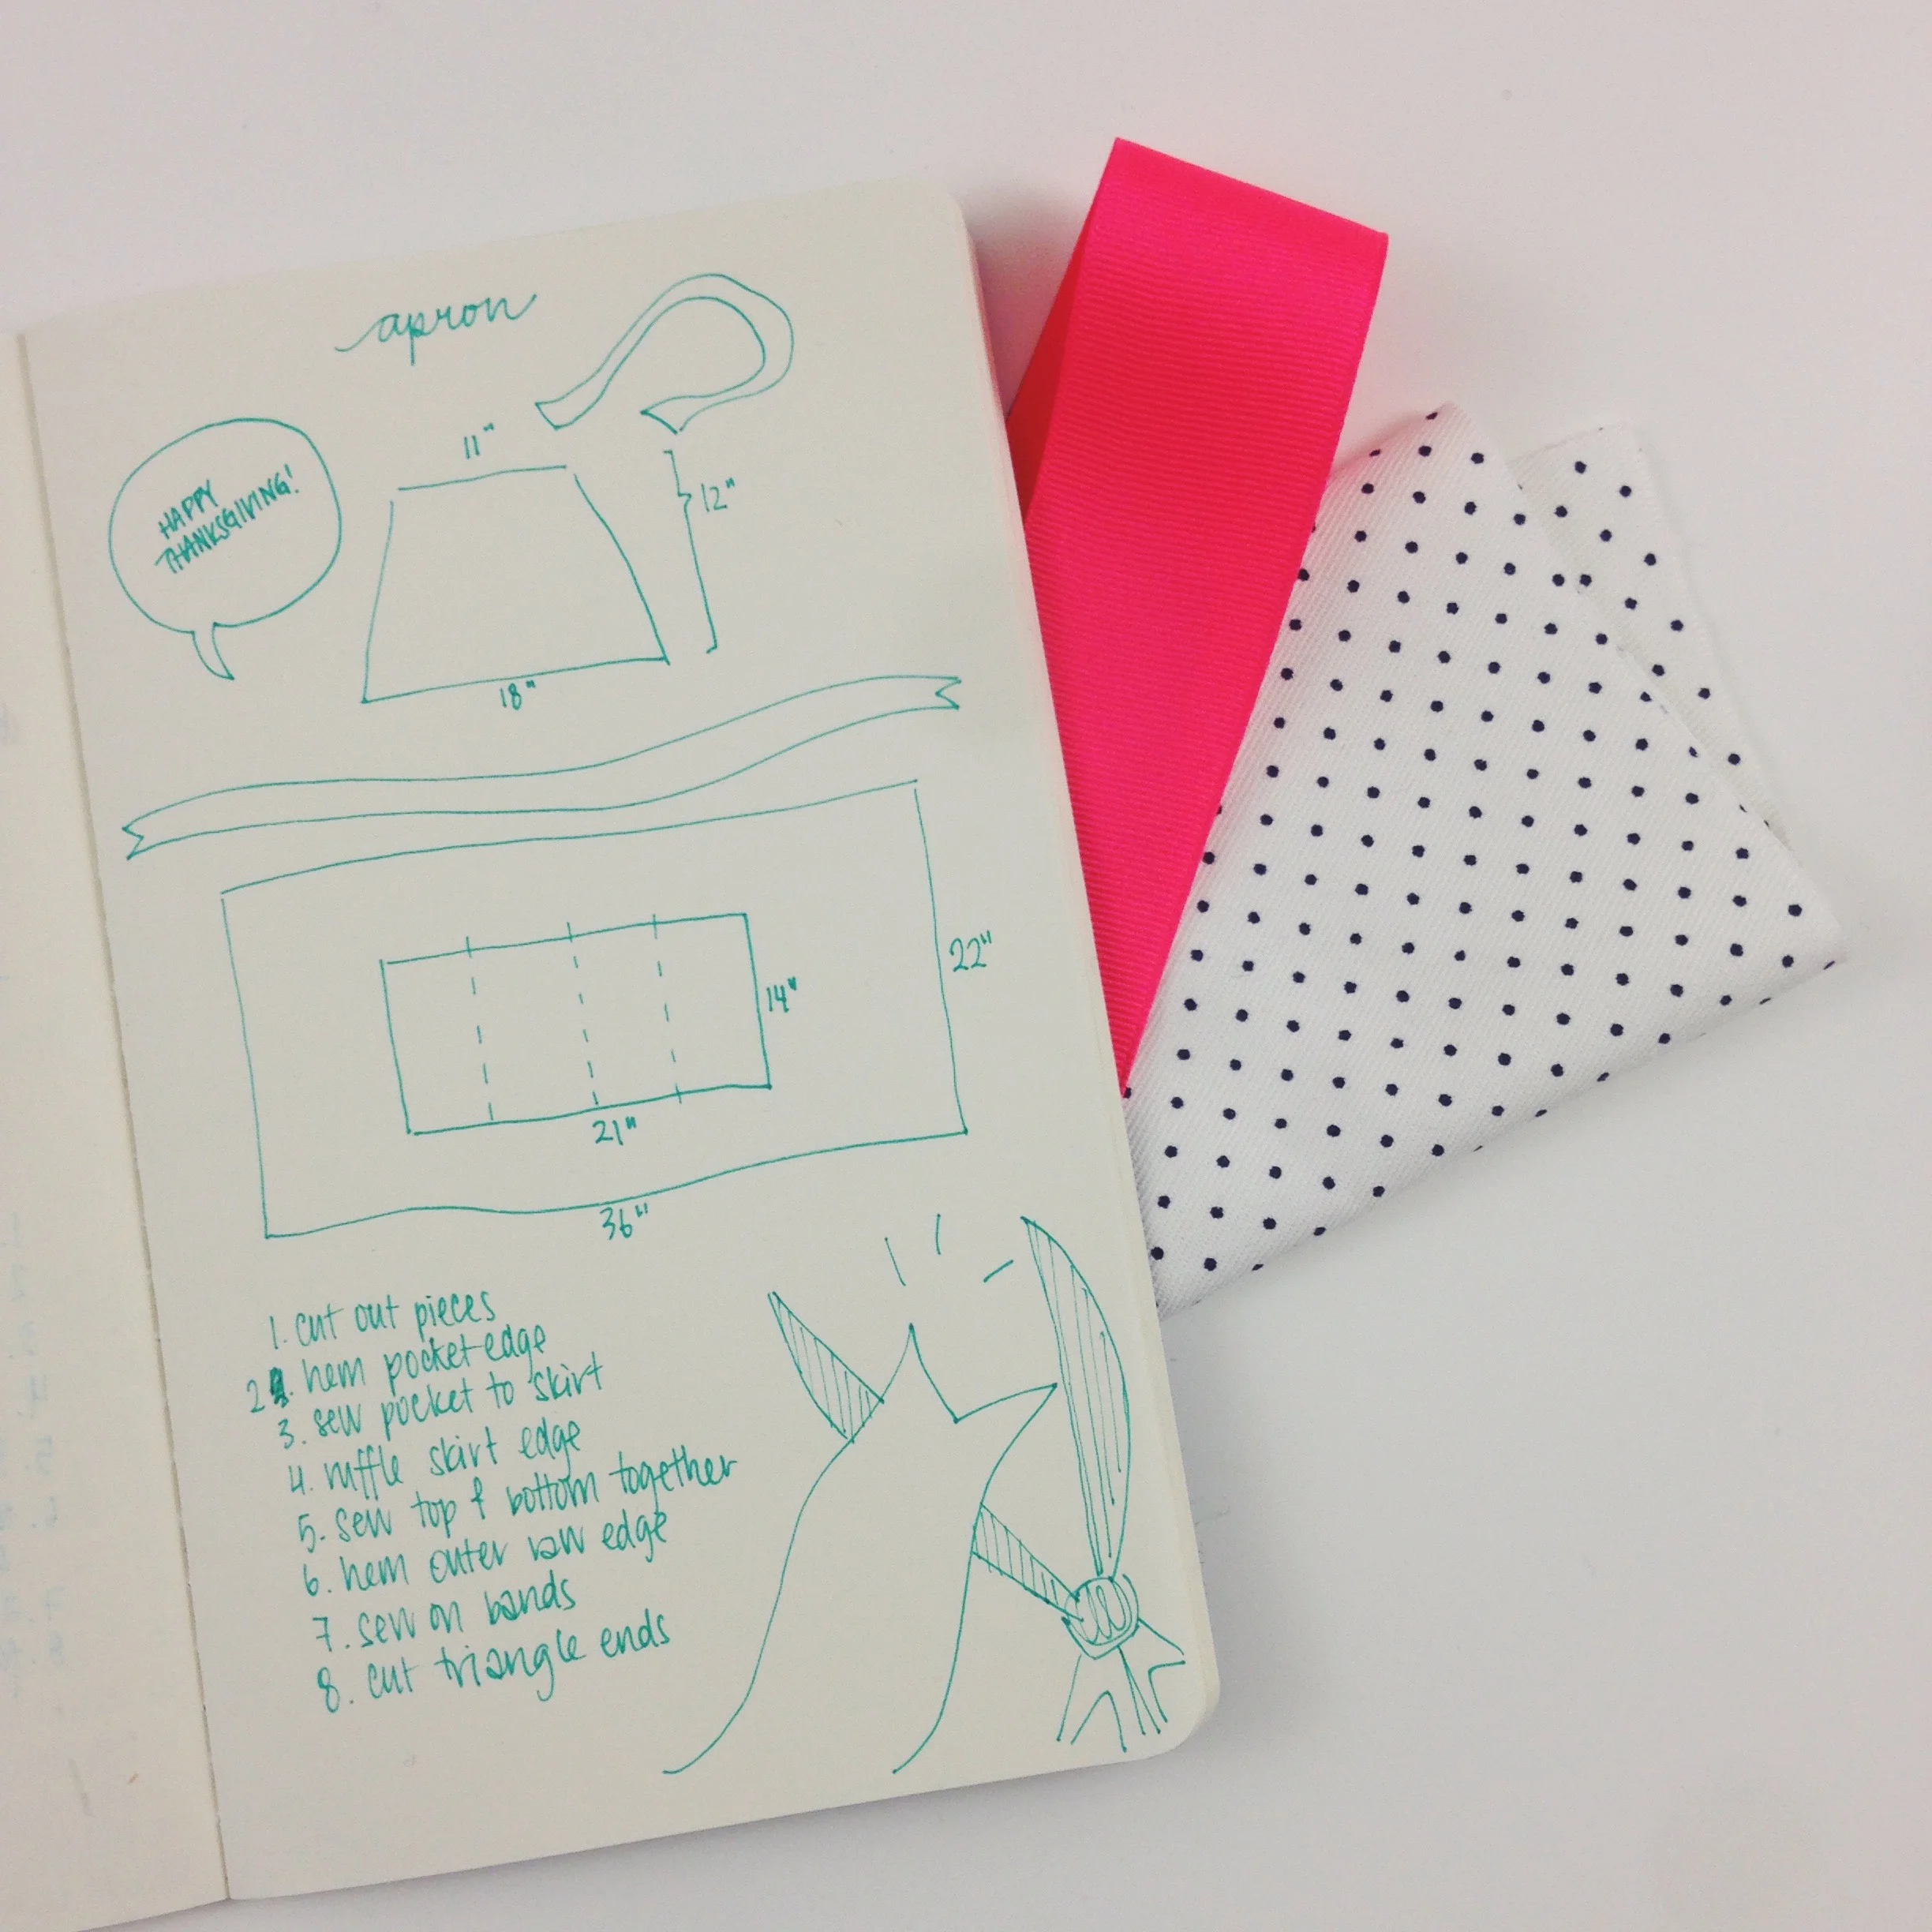 apron
HAPPY
THANKSGIVING!
11"
12"
18"
22"
14"
21"
36"
1. cut out pieces
2. hem pocket edge
3. sew pocket to skirt
4. ruffle skirt edge
5. sew top & bottom together
6. hem outer raw edge
7. sew on bands
8. cut triangle ends